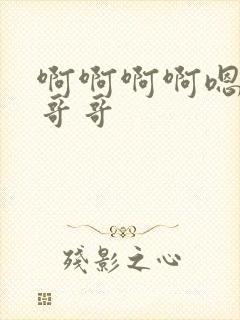 啊啊啊啊嗯
哥哥
残影之心